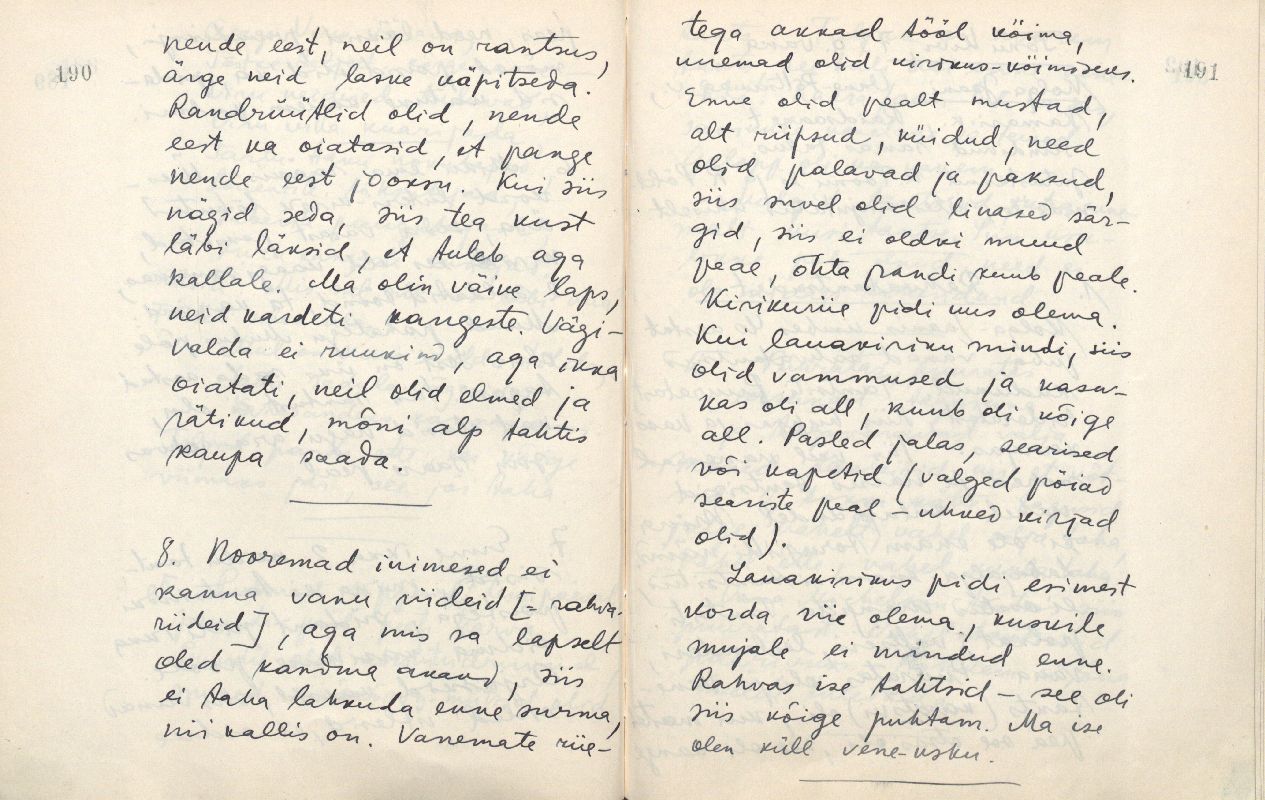 190
nende eest, neil on rantsus,
ärge neid laske käpitseda.
Randrüütlid olid, nende
eest ka oiatasid, et pange
nende eest jooksu. Kui siis
nägid seda, siis tea kust
läbi läksid, et tuleb aga
kallale. Ma olin väike laps,
neid kardeti kangeste. Vägi-
valda ei ruukind, aga ikka
oiatati, neil olid elmed ja
rätikud, mõni alp tahtis
kaupa saada.
8. Nooremad inimesed ei
kanna vanu riideid [= rahva-
riideid], aga mis sa lapselt
oled kandma akand, siis
ei taha lahkuda enne surma,
nii kallis on. Vanemate riie-
191
tega akkad tööl köima,
uuemad olid kirikus-köimiseks.
Enne olid pealt mustad,
alt riipsud, küidud, need
olid palavad ja paksud,
siis suvel olid linased sär-
gid, siis ei oldki muud
peae, õhta pandi kuub peale.
Kirikuriie pidi uus olema.
Kui lauakiriku mindi, siis
olid vammused ja kasu-
kas oli all, kuub oli kõige
all. Pasled jalas, searised
või kapetid (valged pöiad
seariste peal – uhked kirjad
olid).
Lauakirikus pidi esimest
korda riie olema, kuskile
mujale ei mindud enne.
Rahvas ise tahtsid – see oli
siis kõige puhtam. Ma ise
olen küll vene-usku.